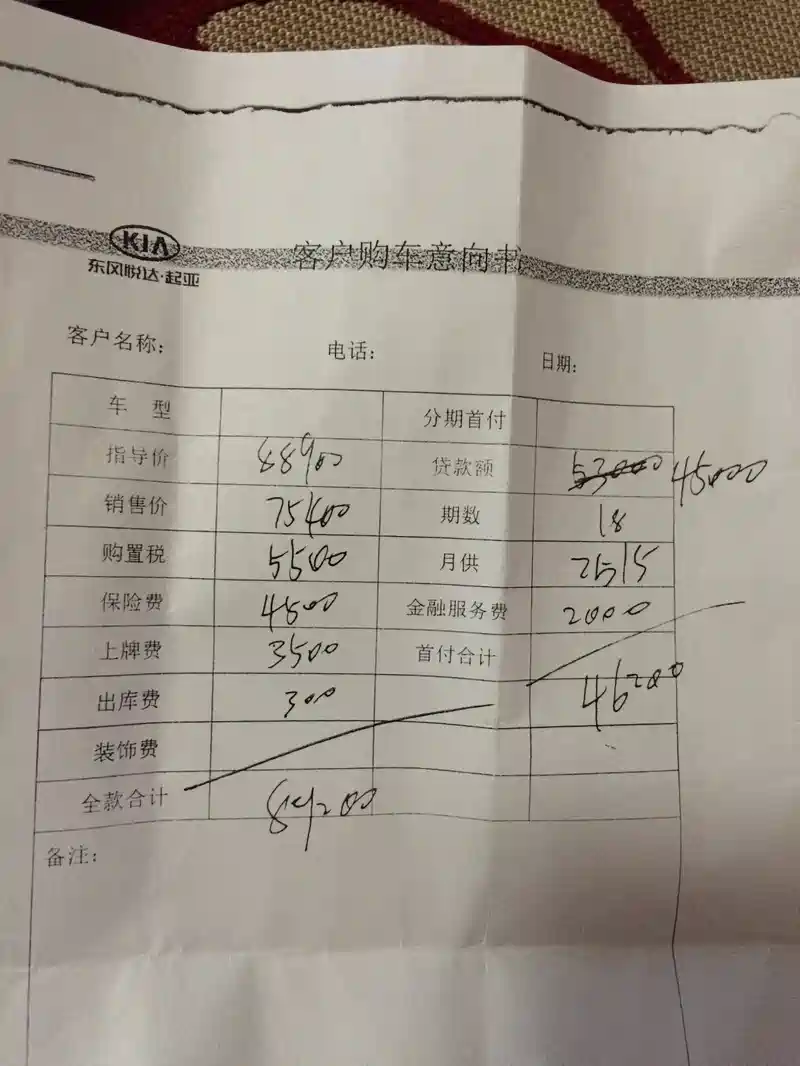 KIA
东风悦达·起亚
客户购车意向书
客户名称: 电话: 日期:
车 型 分期首付
指导价 88900 贷款额 53000 45000
销售价 75400 期数 18
购置税 5500 月供 2515
保险费 4500 金融服务费 2000
上牌费 3500 首付合计
出库费 300 46200
装饰费
全款合计 89200
备注: